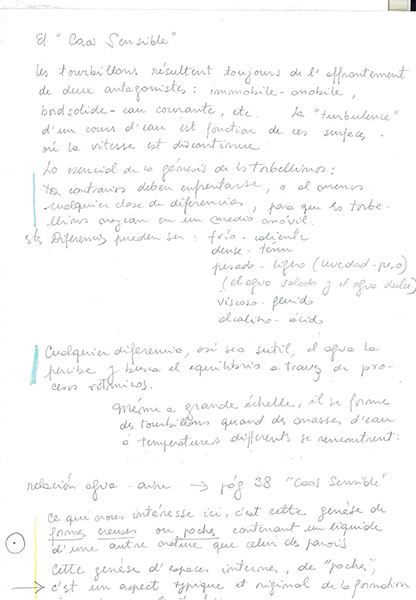 El "Caos Sensible"
Les tourbillons résultent toujours de l'affrontement
de deux antagonistes: immobile-mobile,
bord solide-eau courante, etc. La "turbulence"
d'un cours d'eau est fonction de ces surfaces
où la vitesse est discontinue
Lo esencial de la génesis de los torbellinos:
contrarios deben enfrentarse, o al menos
cualquier clase de diferencias, para que los torbe-
llinos nazcan en un medio móvil.
Diferencias pueden ser: frío-caliente
dense-tenu
pesado-ligero (levedad-peso)
(el agua salada y el agua dulce)
viscoso-fluido
alcalino-ácido
Cualquier diferencia, así sea sutil, el agua la
percibe y busca el equilibrio a travez de pro-
cesos rítmicos.
Même a grande échelle, il se forme
des tourbillons quand des masses d'eau
à températures differents se rencontrent:
relación agua-aire → pág 38 "Caos Sensible"
ce qui nous intéresse ici, c'est cette genèse de
formes creuses ou poches contenant un liquide
d'une autre nature que celui des parois
Cette genèse d'espaces internes, de "poches",
→ c'est un aspect typique et original de la formation